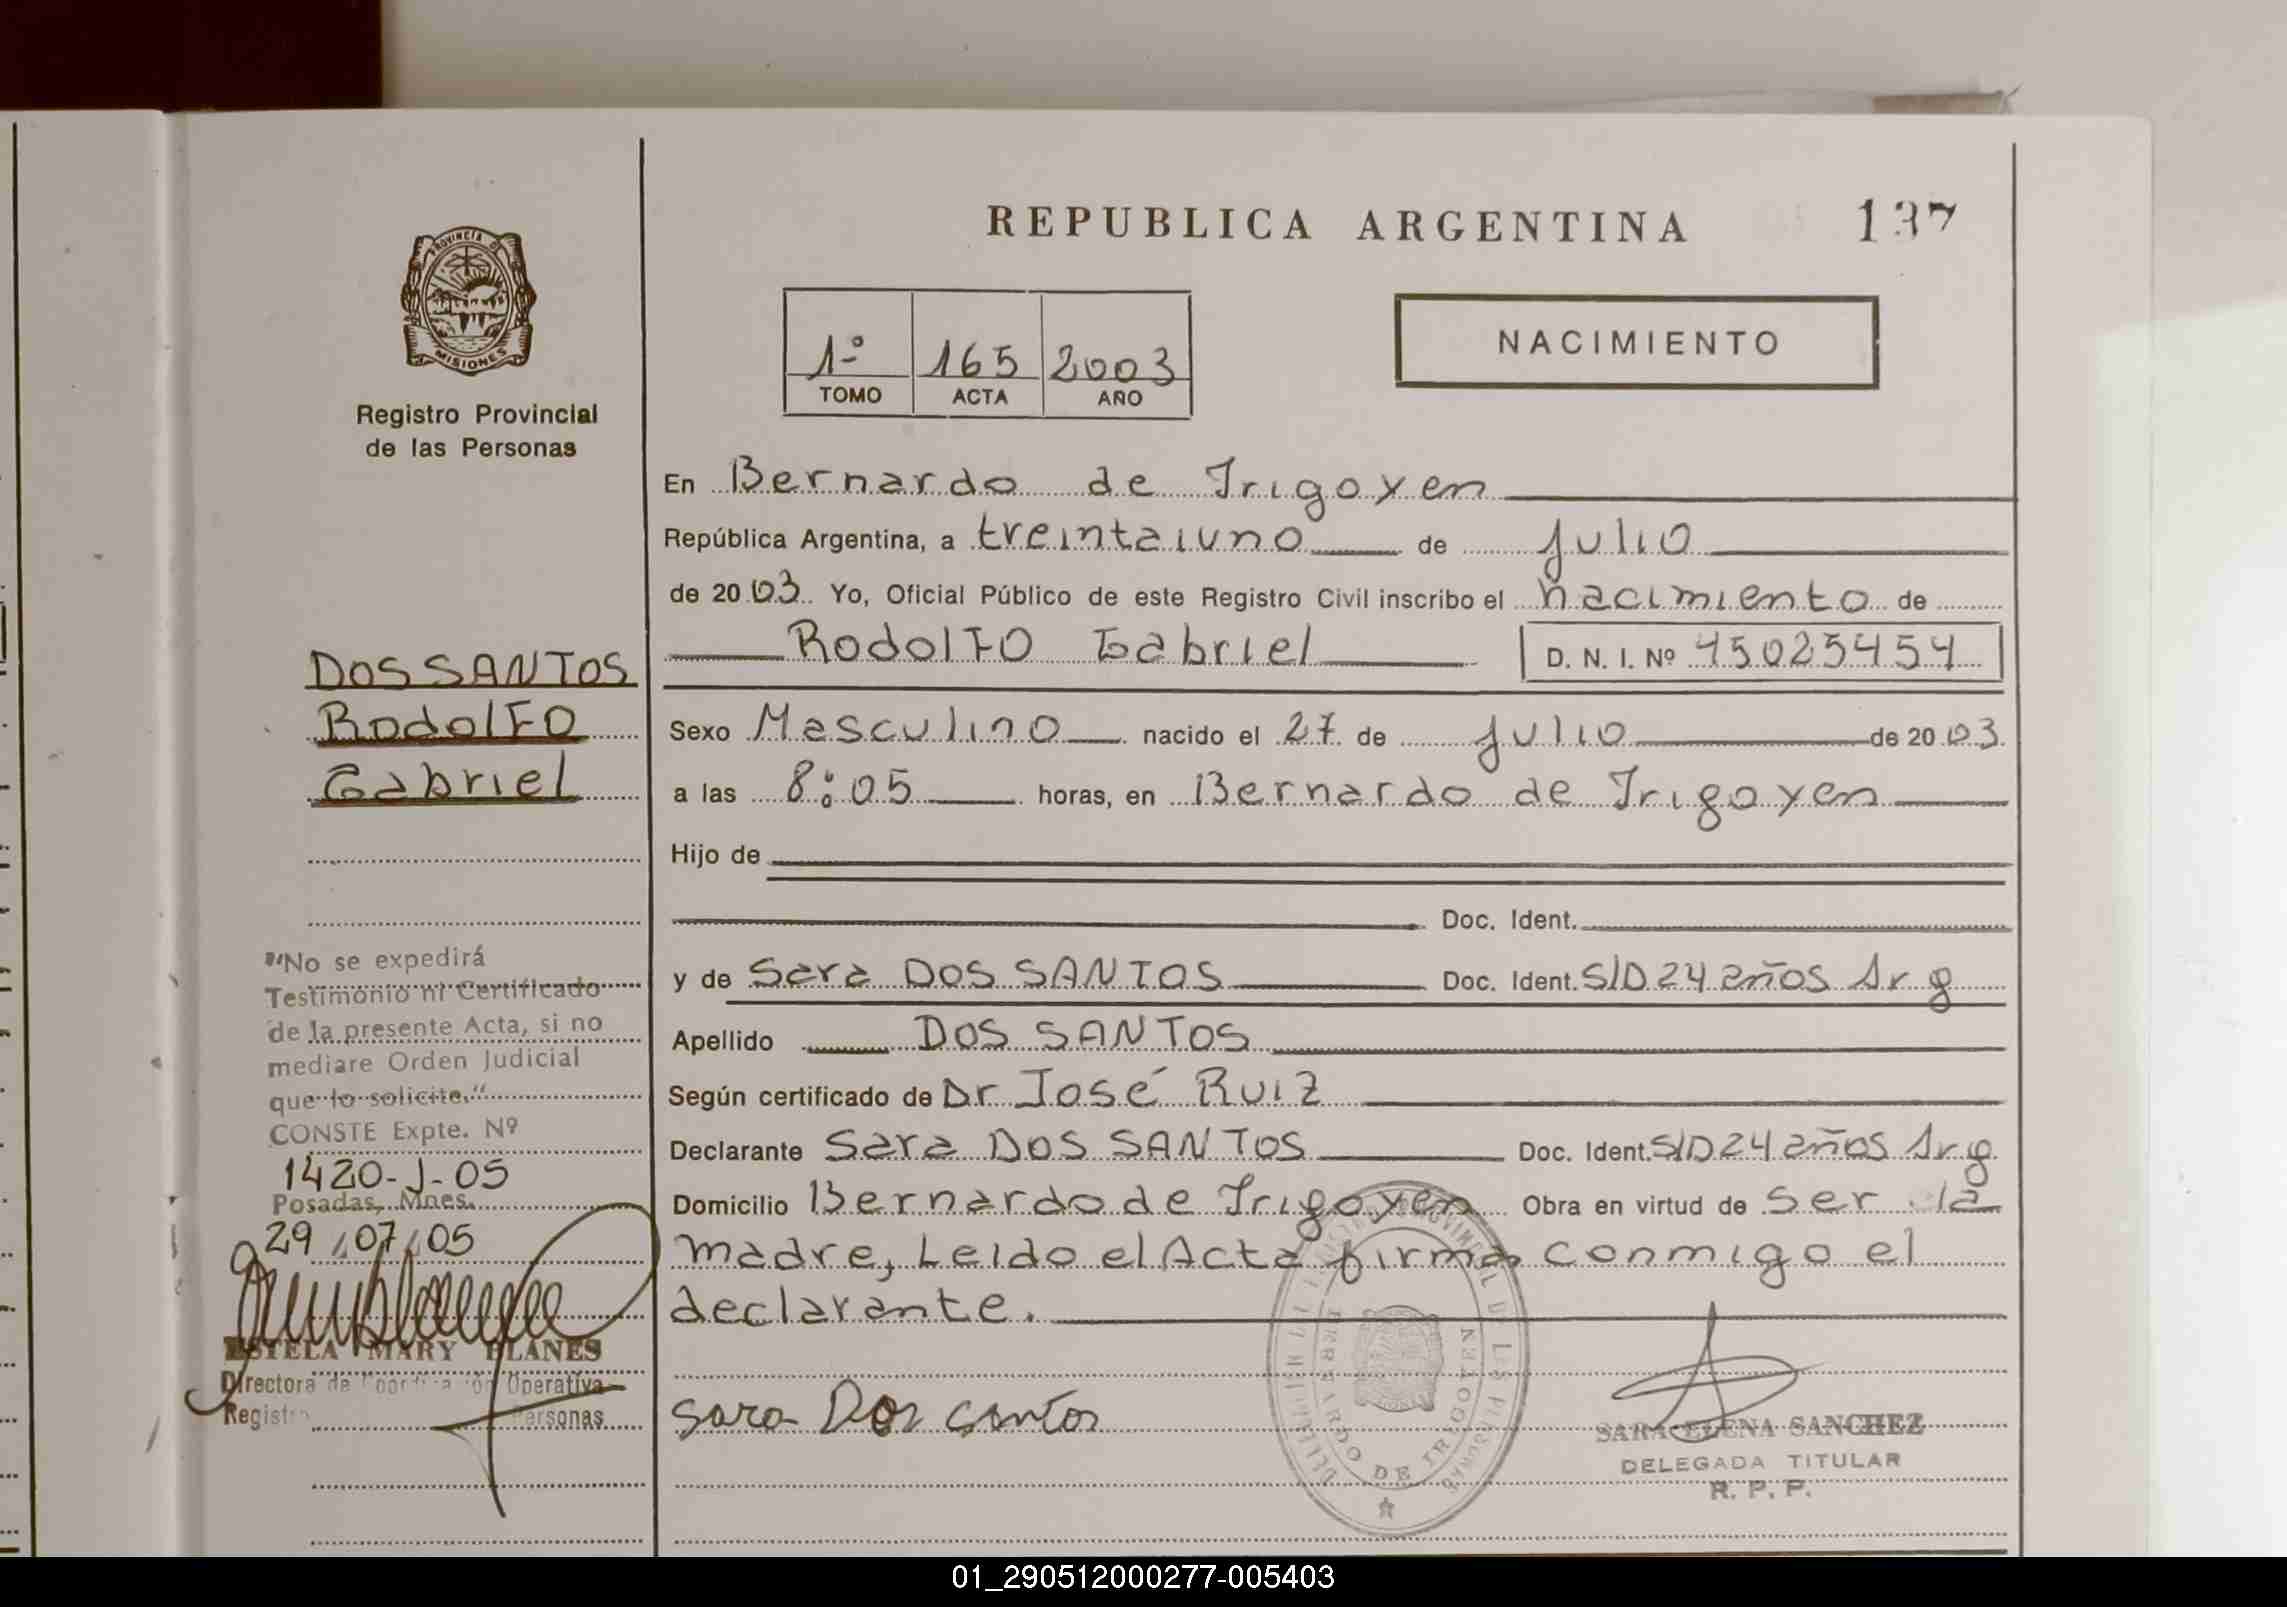 REPUBLICA ARGENTINA
137
PROVINCIA DE
MISIONES
Registro Provincial
de las Personas
1º 165 2003
TOMO ACTA AÑO
NACIMIENTO
En Bernardo de Irigoyen
República Argentina, a treintaiuno de Julio
de 2003 Yo, Oficial Público de este Registro Civil inscribo el nacimiento de
Rodolfo Gabriel D. N. I. Nº 45025454
DOS SANTOS
Rodolfo
Gabriel
Sexo Masculino nacido el 27 de Julio de 2003
a las 8:05 horas, en Bernardo de Irigoyen
Hijo de
Doc. Ident.
y de Sara DOS SANTOS Doc. Ident. S/D 24 años Arg
Apellido DOS SANTOS
Según certificado de Dr José Ruiz
Declarante Sara DOS SANTOS Doc. Ident. S/D 24 años Arg
Domicilio Bernardo de Irigoyen Obra en virtud de ser la
madre, Leido el Acta firma conmigo el
declarante.
"No se expedirá
Testimonio ni Certificado
de la presente Acta, si no
mediare Orden Judicial
que lo solicite."
CONSTE Expte. Nº
1420-J-05
Posadas, Mnes.
29/07/05
ESTELA MARY BLANES
Directora de Coordinación Operativa
Registro Personas
Sara Dos Santos
BERNARDO DE IRIGOYEN
SARA ELENA SANCHEZ
DELEGADA TITULAR
R. P. P.
01_290512000277-005403